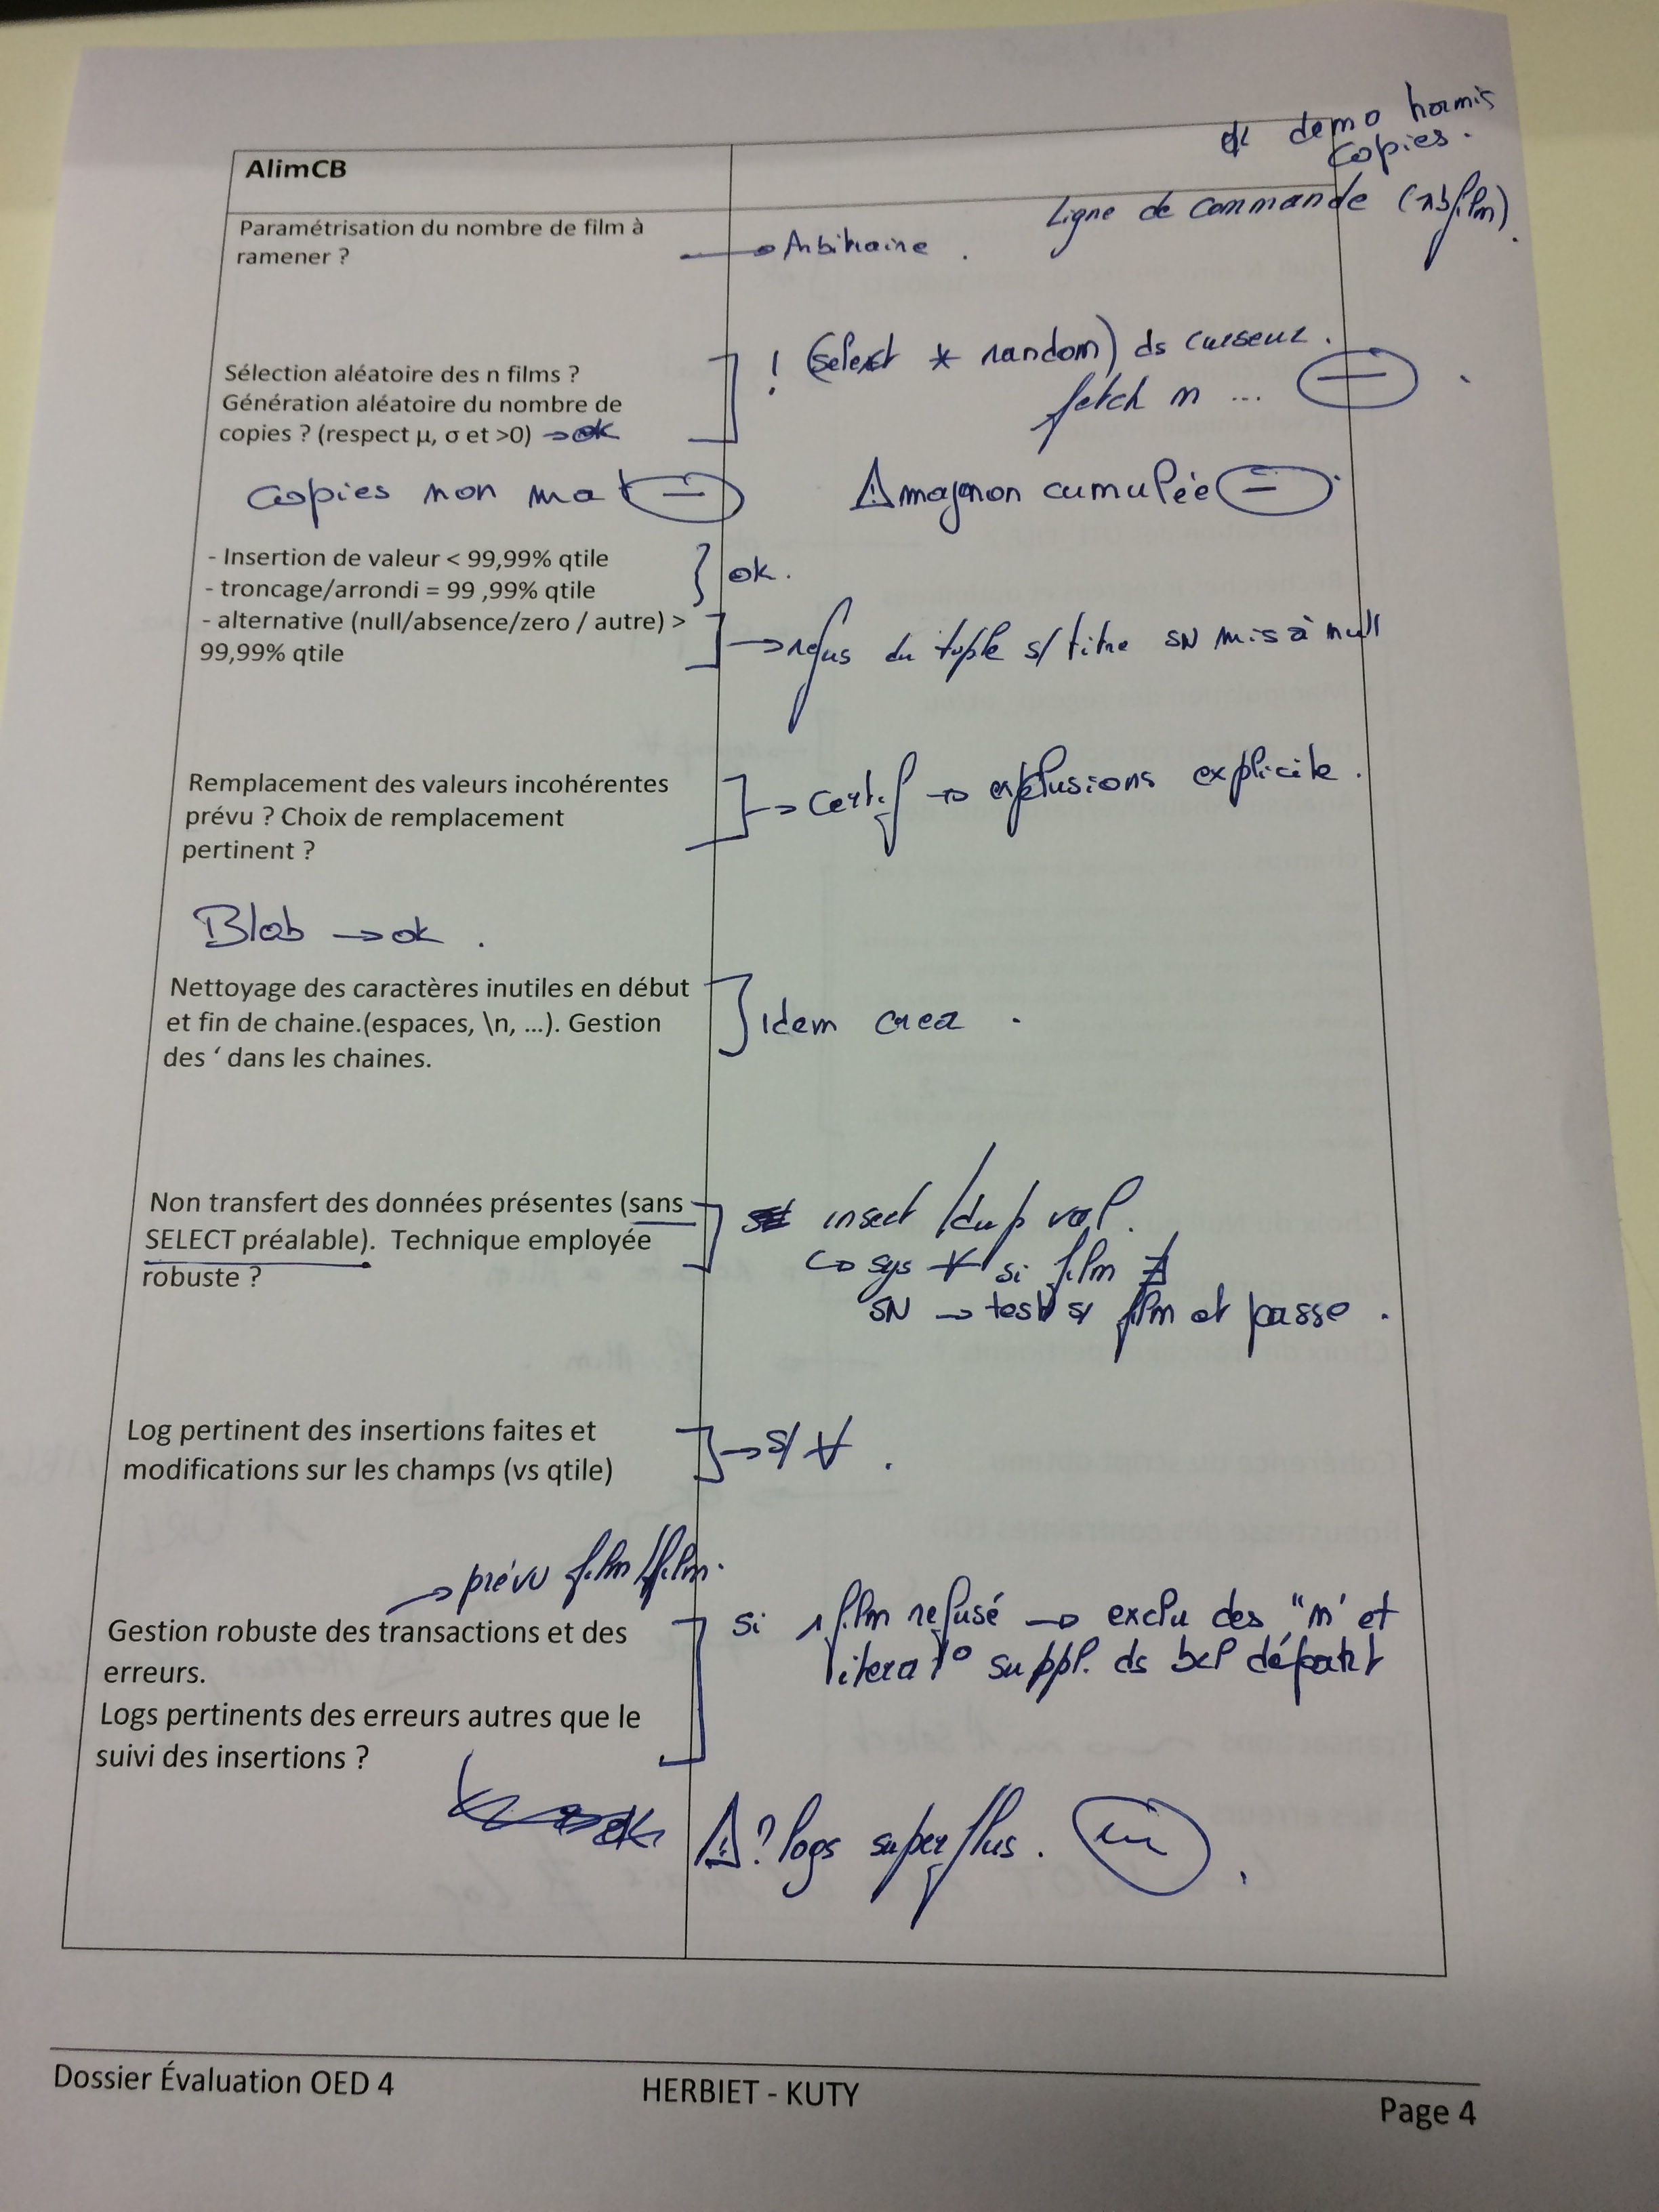 ok demo hormis
copies.
AlimCB
Ligne de commande (nbfilm).
Paramétrisation du nombre de film à
ramener ?
→ Arbitraire.
Sélection aléatoire des n films ?
Génération aléatoire du nombre de
copies ? (respect µ, σ et >0) → ok
! (select * random) ds curseur.
fetch n ... –
copies non mat –
⚠ cumulée –
- Insertion de valeur < 99,99% qtile
- troncage/arrondi = 99 ,99% qtile
ok.
- alternative (null/absence/zero / autre) >
99,99% qtile
→ refus du tuple s/ titre SN mis à null
Remplacement des valeurs incohérentes
prévu ? Choix de remplacement
pertinent ?
→ certif → explicite.
Blob → ok.
Nettoyage des caractères inutiles en début
et fin de chaine.(espaces, \n, ...). Gestion
des ‘ dans les chaines.
idem crea.
Non transfert des données présentes (sans
SELECT préalable). Technique employée
robuste ?
insert /dup val.
↳ sys ∀ si film ∄
SN → test s/ film et passe.
Log pertinent des insertions faites et
modifications sur les champs (vs qtile)
→ s/ ∀.
→ prévu film/film.
Gestion robuste des transactions et des
erreurs.
Logs pertinents des erreurs autres que le
suivi des insertions ?
si 1 film refusé → exclu des "n" et
iterat° suppl. ds bcl départ
ok
⚠? logs superflus.
Dossier Évaluation OED 4
HERBIET - KUTY
Page 4